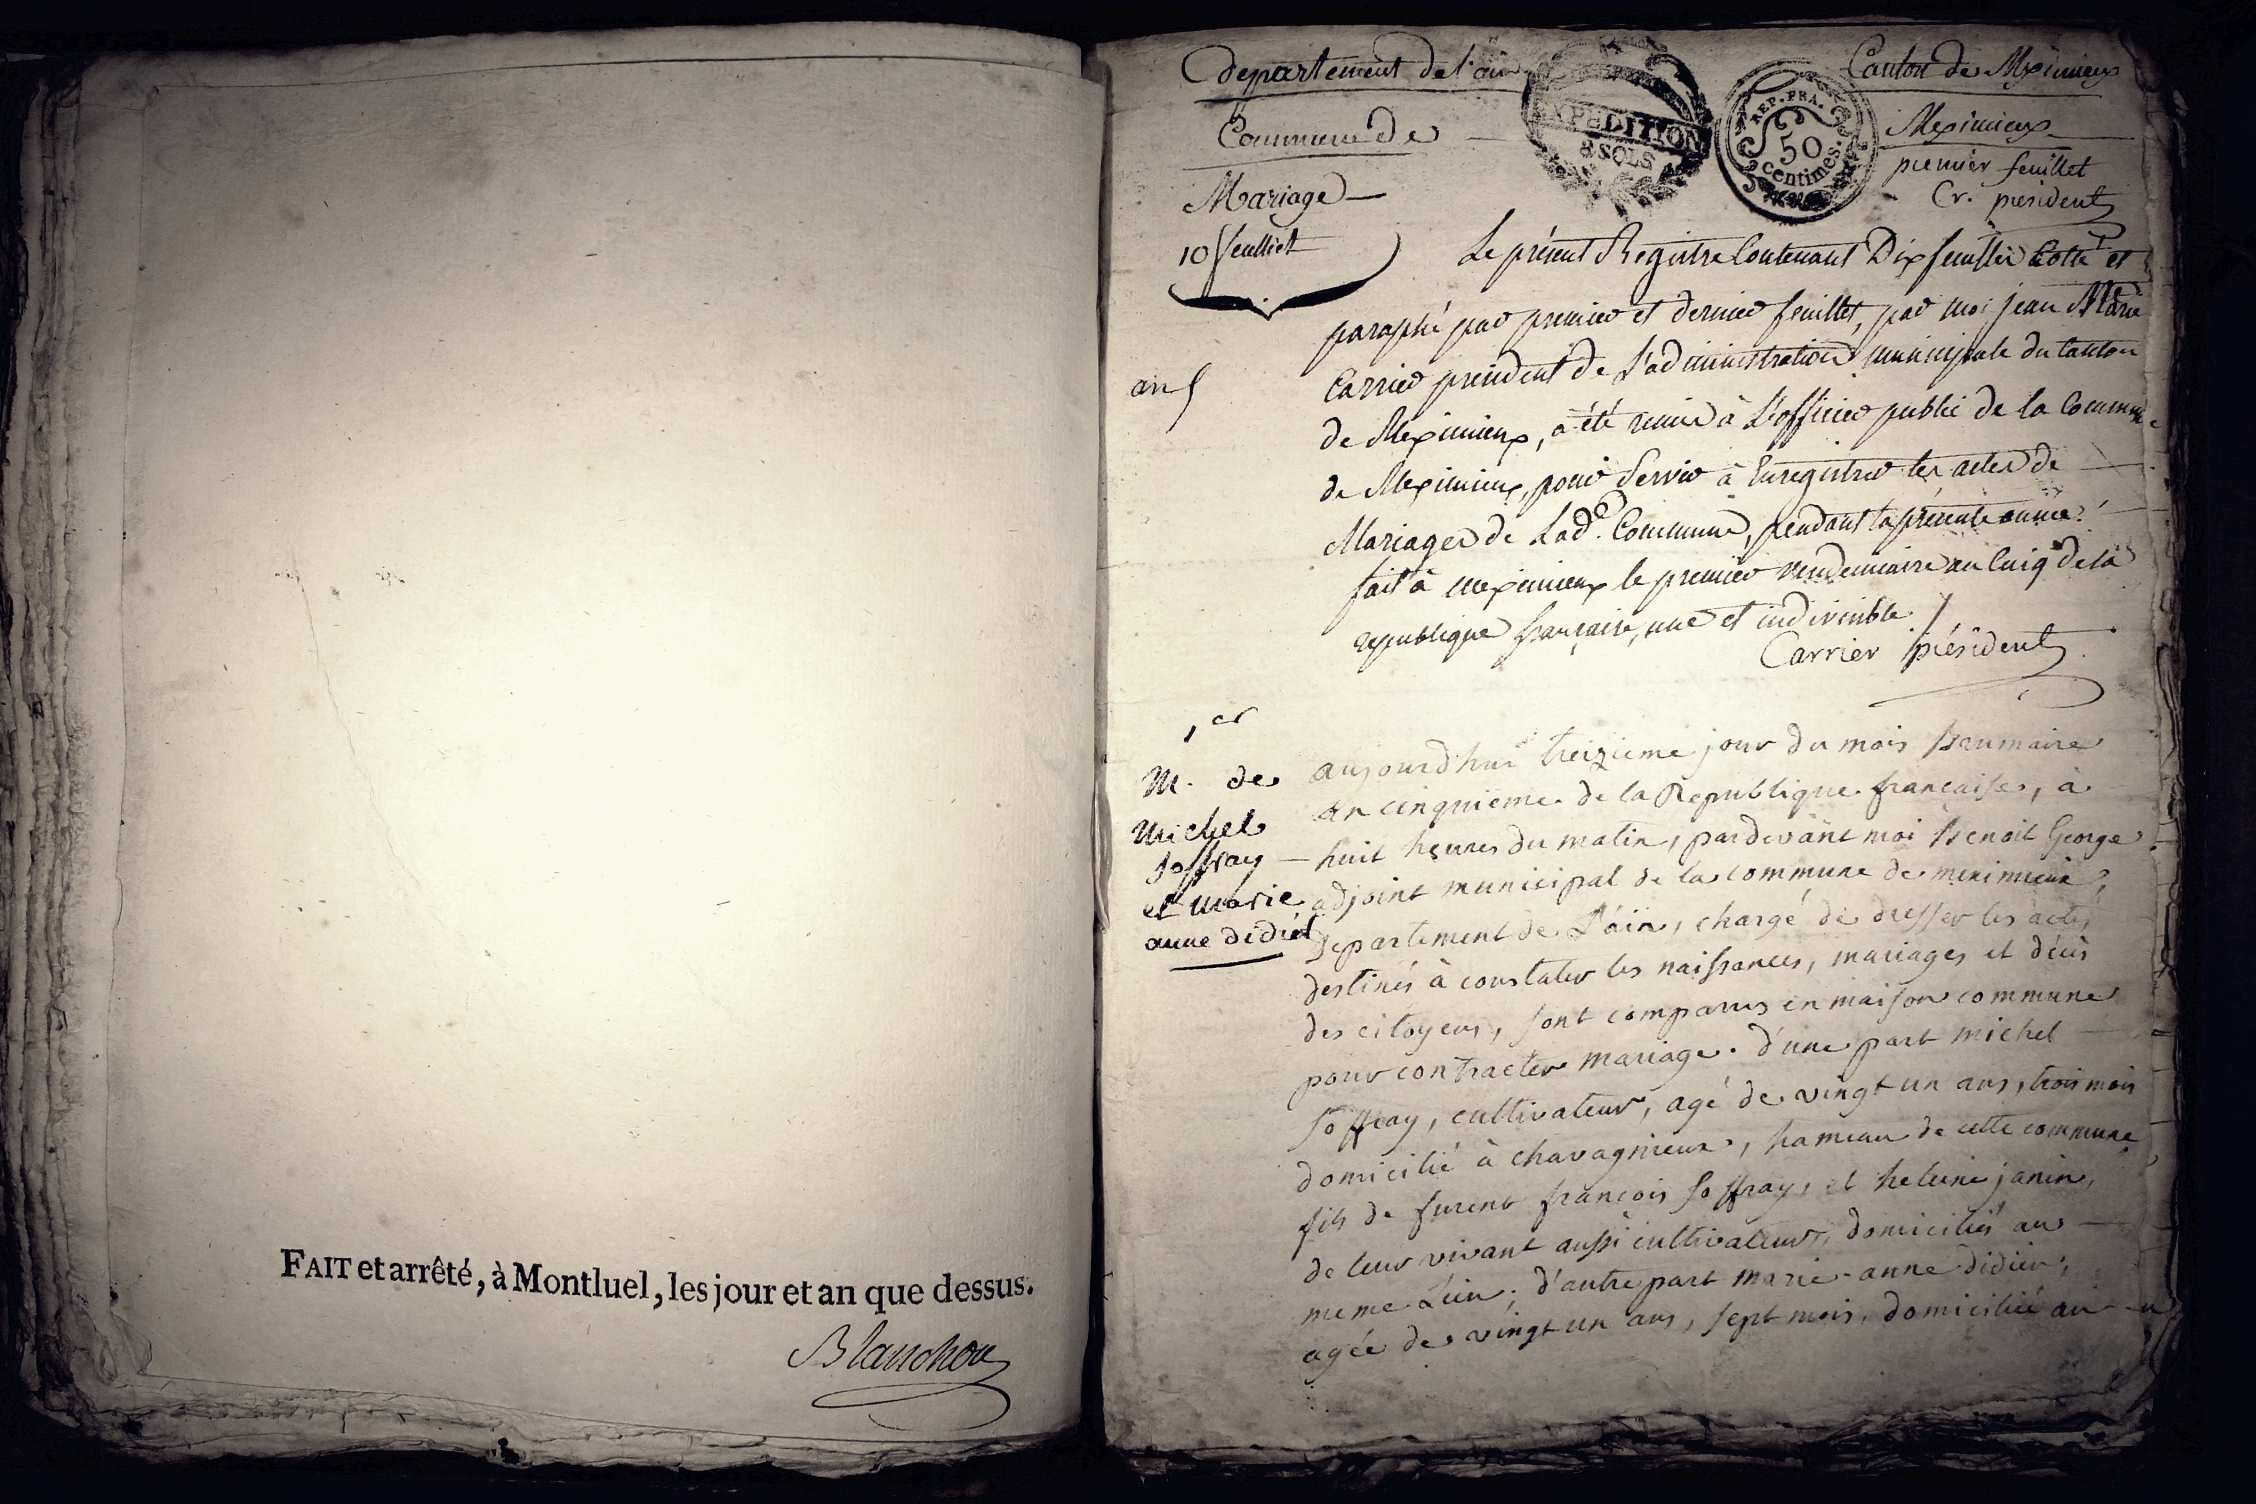 FAIT et arrêté, à Montluel, les jour et an que dessus.
Blanchon
departement de l'ain
Canton de Meximieux
Commune de
Meximieux
EXPEDITION
8 SOLS
REP. FRA.
50
centimes.
premier feuillet
Cr. président
Mariage
10 feuillet
an 5
Le présent Registre Contenant Dix feuillets Cotté et
paraphé par premier et dernier feuillet, par moi jean Marie
Carrier président de L'administration municipale du Canton
de Meximieux, a été remis à L'officier public de la Commune
de Meximieux, pour Servir à Enregistrer les actes de
Mariages de Lad.e Commune, pendant la présente année.
fait à meximieux le premier vendemiaire an Cinq de la
republique française, une et indivisible.
Carrier président
1er
M. de
Michel
soffray
et marie
anne didier
aujourd'hui treizieme jour du mois brumaire
an cinquieme de la Republique française, à
huit heures du matin, pardevant moi Benoit George
adjoint municipal de la commune de meximieux,
departement de L'ain, chargé de dresser les actes
destinés à constater les naissances, mariages et décès
des citoyens, sont comparus en maison commune
pour contracter mariage. d'une part michel
soffray, cultivateur, agé de vingt un ans, trois mois
domicilié à chavagnieux, hameau de cette commune
fils de furent françois soffray, et heleine janin,
de leur vivant aussi cultivateurs, domiciliés au
meme Lieu; d'autre part marie-anne didier,
agée de vingt un ans, sept mois, domiciliée au